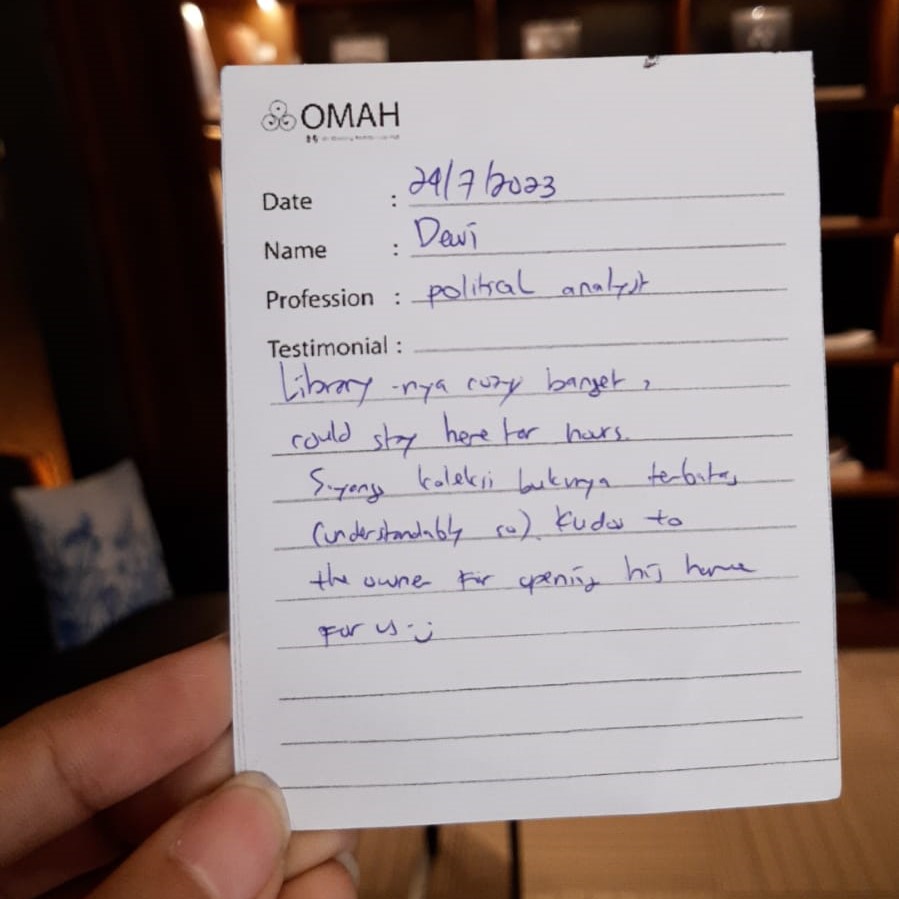 OMAH
Date : 24/7/2023
Name : Dewi
Profession : political analyst
Testimonial :
Library-nya cozy banget,
could stay here for hours.
Sayang koleksi bukunya terbatas
(understandably so). Kudos to
the owner for opening his home
for us :)